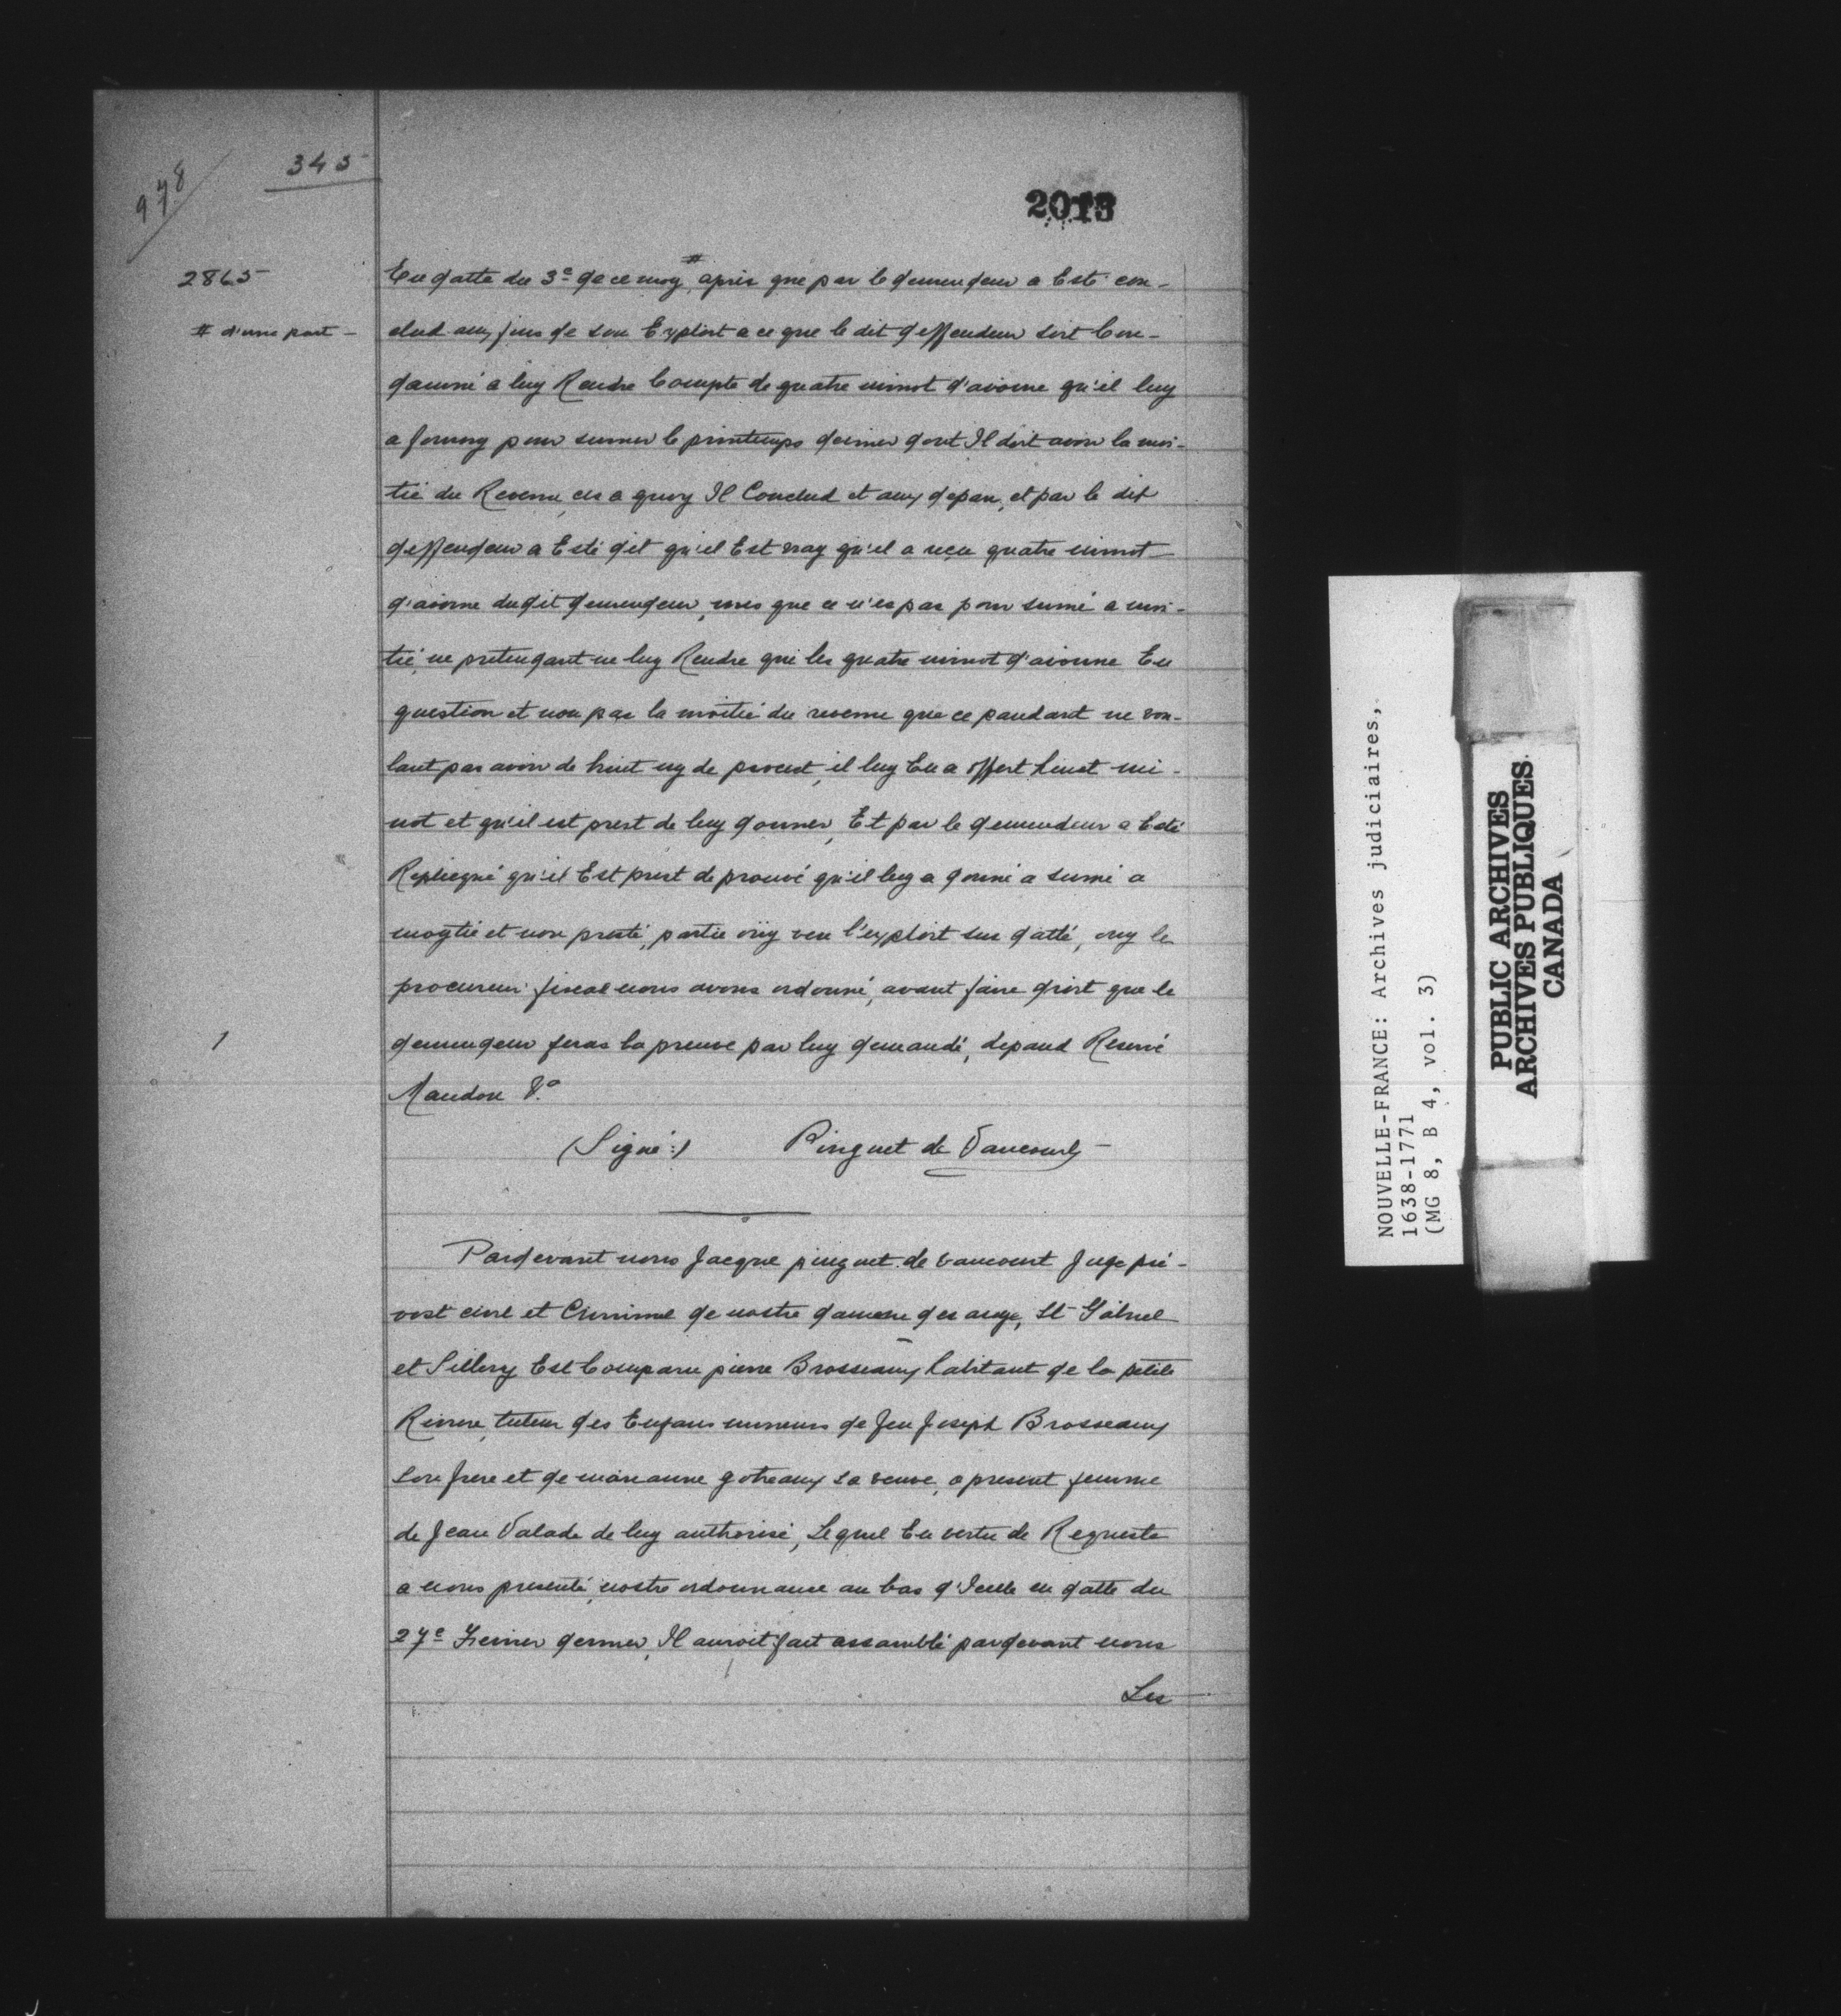 978
345
2013
2865
En datte du 3e de ce moy # apres que par le demendeur a Esté con-
# d'une part -
clud aux fins de son Exploit a ce que le dit deffendeur soit Con-
damné a luy Rendre Compte de quatre minot d'avoine qu'il luy
a fourny pour semer le printemps dernier dont Il doit avoir la moi-
tié du Revenu, cis a quoy Il Conclud et aux depan, et par le dit
deffendeur a Esté dit qu'il Est vray qu'il a reçu quatre minot
d'avoine dudit demendeur, mes que ce n'es pas pour semé a moi-
tié, ne pretendant ne luy Rendre que les quatre minot d'avoinne En
question et non pas la moitié du revenu que ce pandant ne vou-
lant pas avoir de bruit ny de procest, il luy En a offert huit mi-
not et qu'il est prest de luy donner, Et par le demendeur a Esté
Repliegué qu'il Est prest de prouvé qu'il luy a donné a semé a
moytié et non presté, partie oüy veu l'exploit sus datté, ouy le
procureur fiscal nous avons ordonné, avant faire droit que le
1
demendeur feras la preuve par luy demandé, depand Reservé
Mandon &a
(Signé:) Pinguet de Vaucourt
Pardevant nous Jacque pinguet de vaucourt Juge pré-
vost civil et Criminel de nostre damme des ange, St Gabriel
et Sillery Est Comparu pierre Brosseaux habitant de la petite
Riviere, tuteur des Enfans mineurs de feu Joseph Brosseaux
son frere et de marianne gotreaux sa veuve, a present femme
de Jean Valade de luy authorisé, Lequel En vertu de Requeste
a nous presenté, nostre ordonnance au bas d'Icelle en datte du
27e Fevrier dernier, Il auroit fait assamblé pardevant nous
Les
NOUVELLE-FRANCE: Archives judiciaires,
1638-1771
(MG 8, B 4, vol. 3)
PUBLIC ARCHIVES
ARCHIVES PUBLIQUES
CANADA